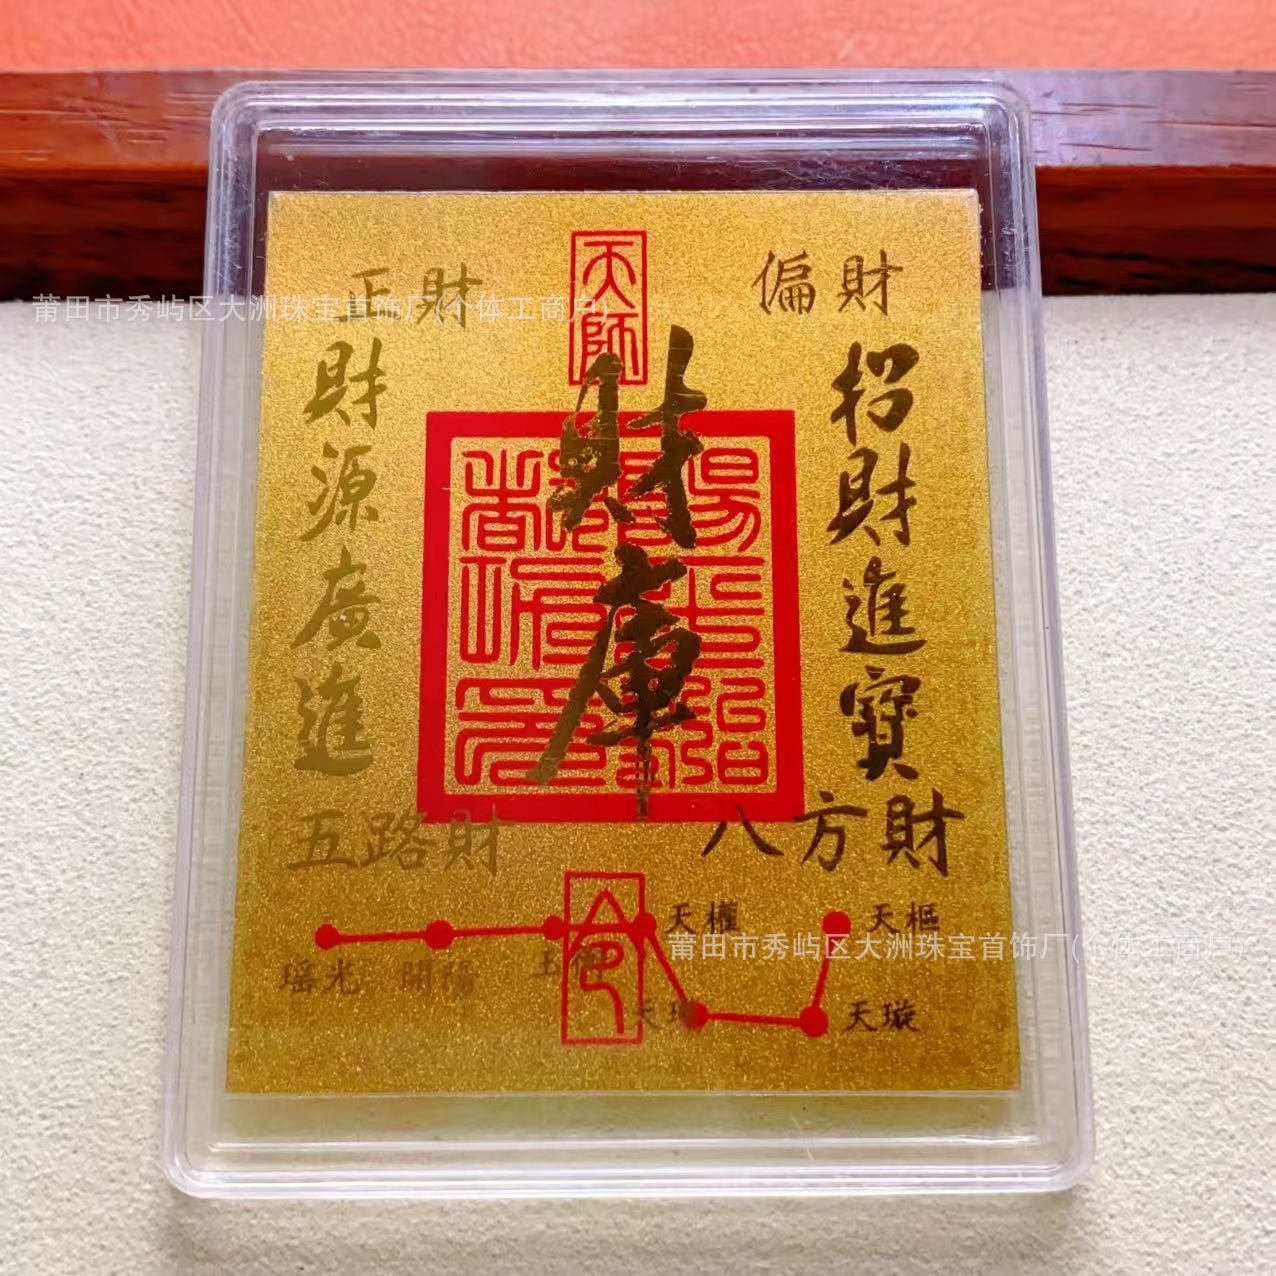 天師
正財
偏財
招財進寶
財庫
財源廣進
五路財
八方財
令
天權
天樞
瑶光
開陽
天璇
莆田市秀屿区大洲珠宝首饰厂(个体工商户)
莆田市秀屿区大洲珠宝首饰厂(个体工商户)